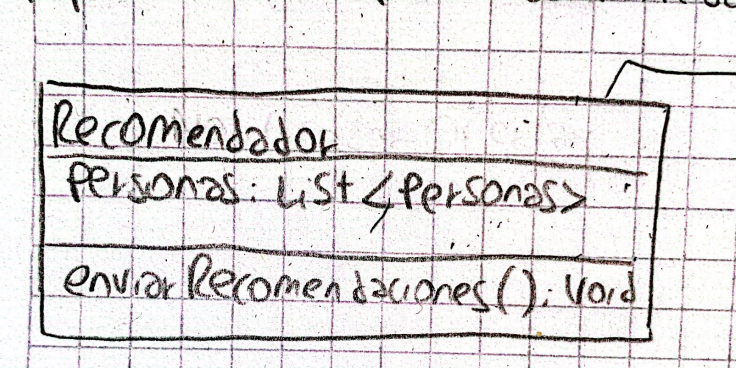 Recomendador
personas: List<Personas>
enviarRecomendaciones(): void